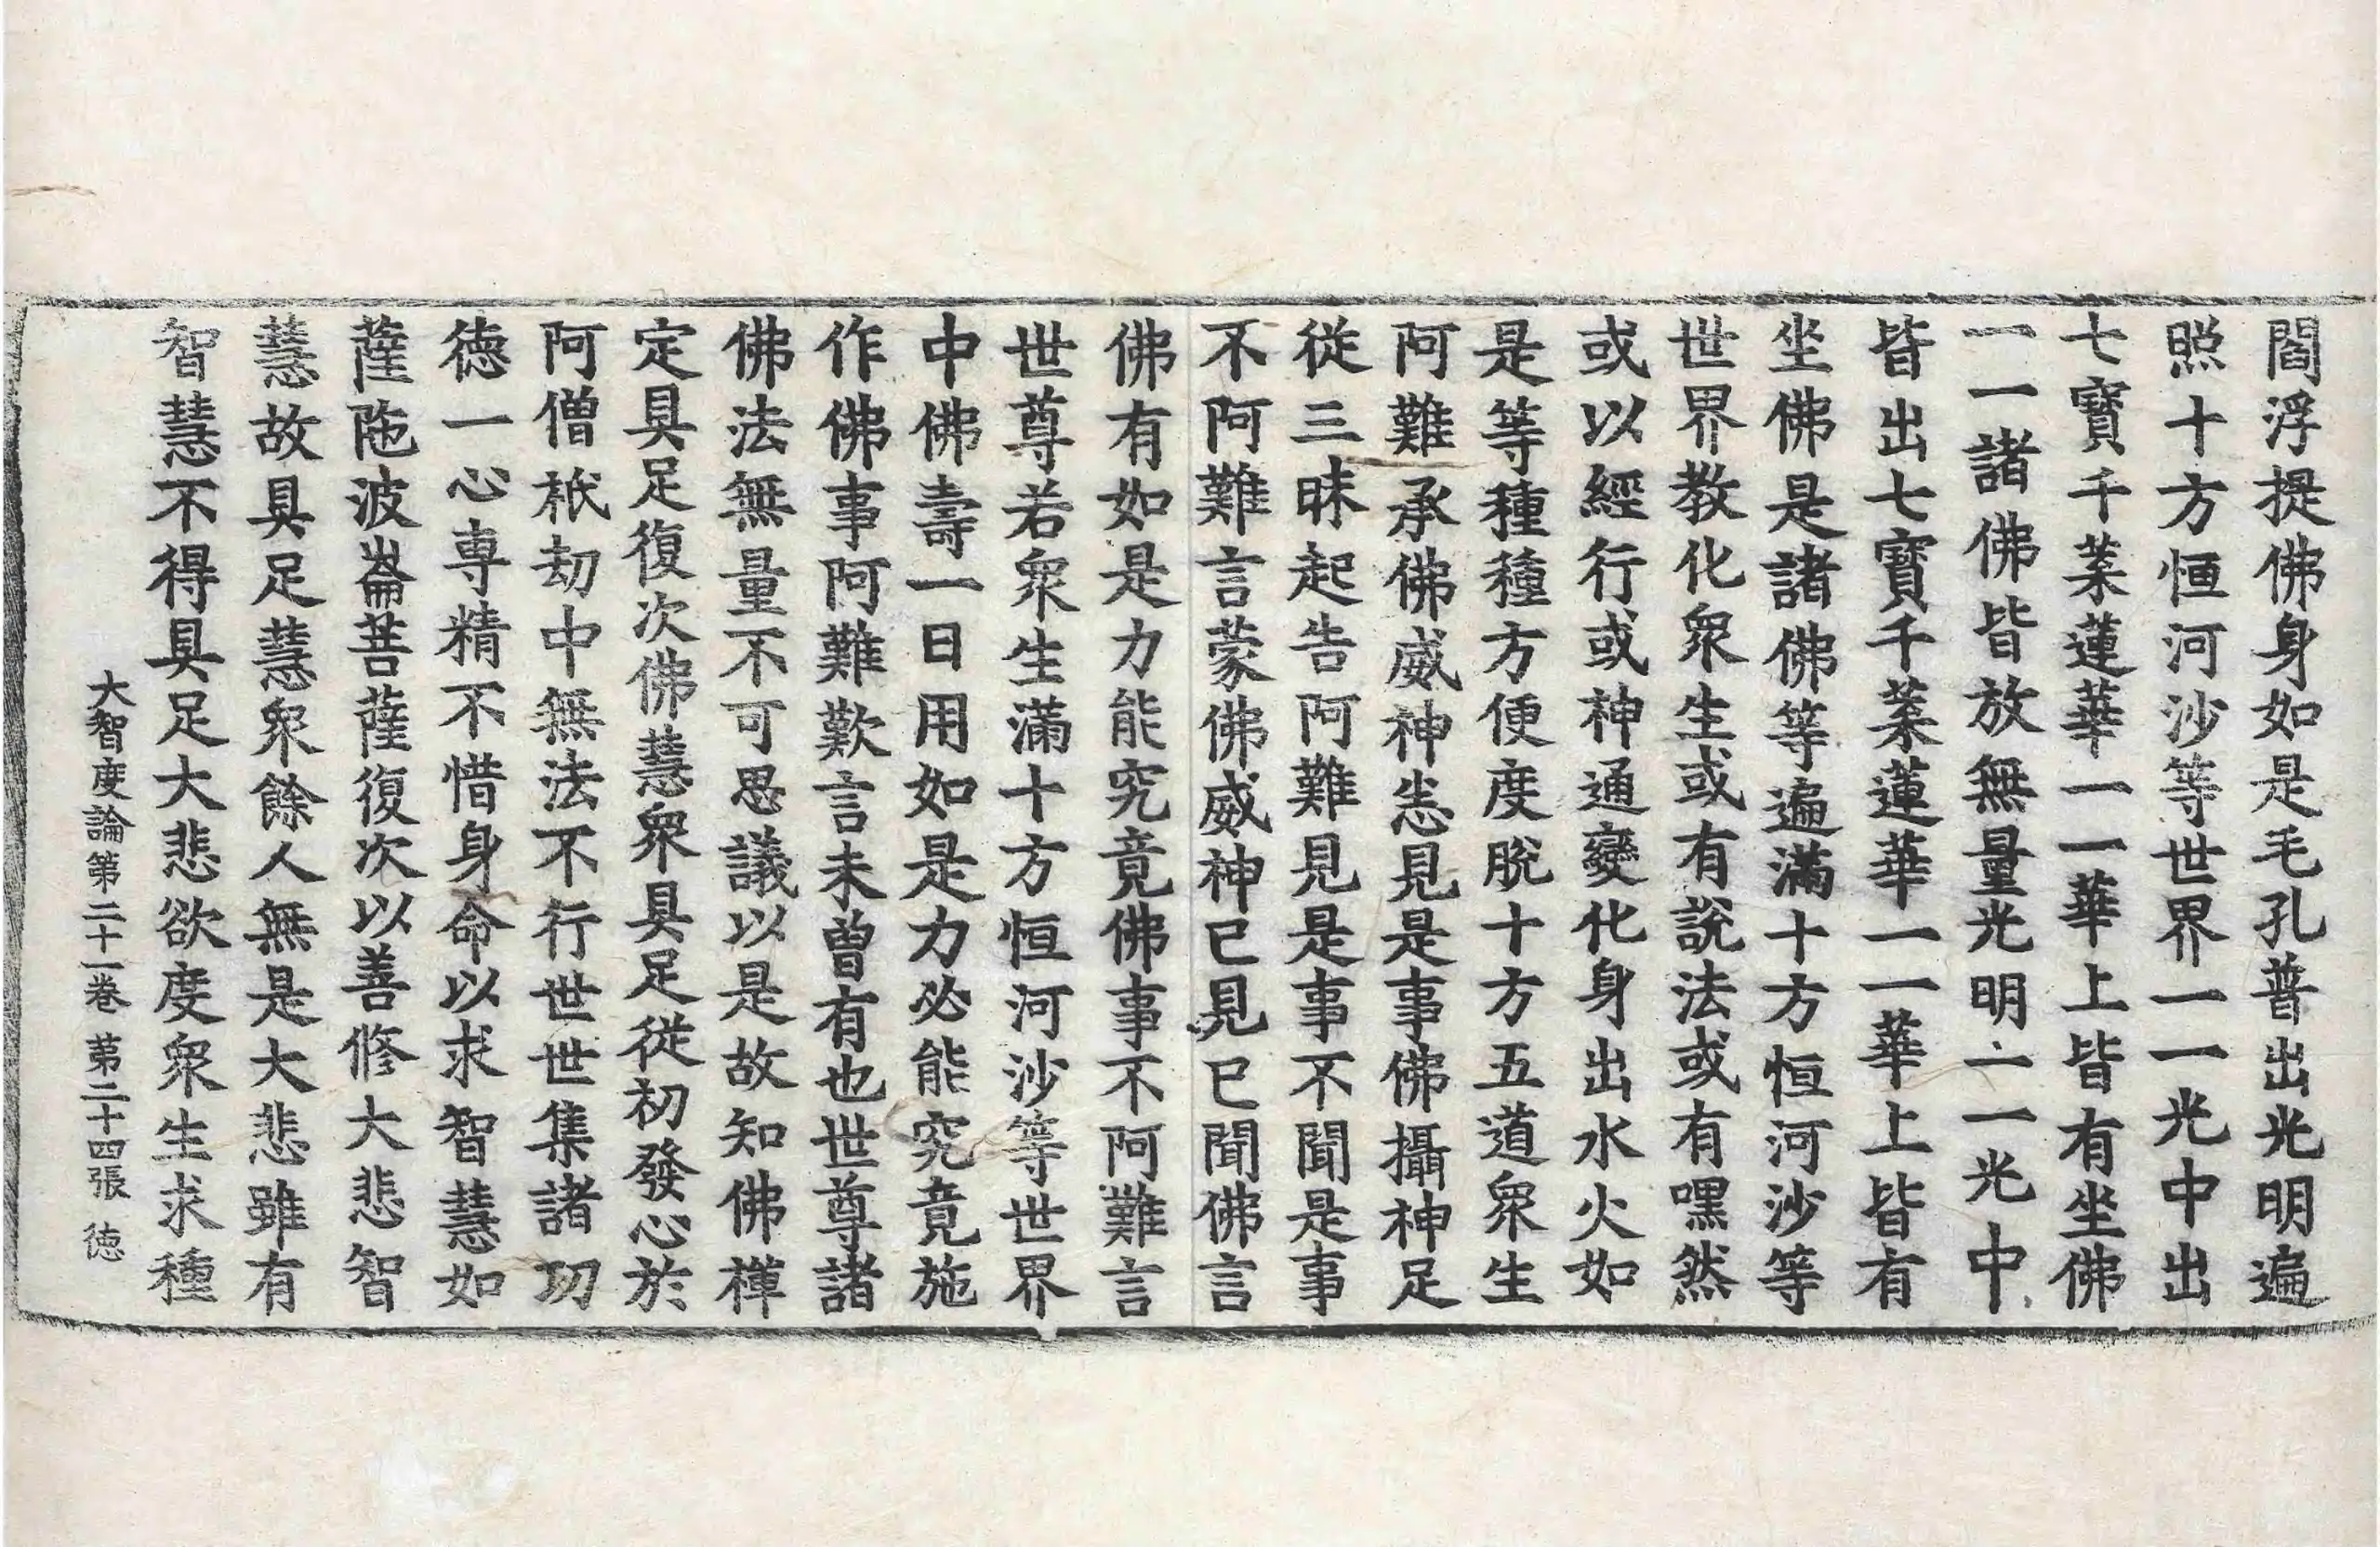 閻浮提佛身如是毛孔普出光明遍
照十方恒河沙等世界一一光中出
七寶千葉蓮華一一華上皆有坐佛
一一諸佛皆放無量光明一一光中
皆出七寶千葉蓮華一一華上皆有
坐佛是諸佛等遍滿十方恒河沙等
世界教化衆生或有說法或有嘿然
或以經行或神通變化身出水火如
是等種種方便度脫十方五道衆生
阿難承佛威神悉見是事佛攝神足
從三昧起告阿難見是事不聞是事
不阿難言蒙佛威神已見已聞佛言
佛有如是力能究竟佛事不阿難言
世尊若衆生滿十方恒河沙等世界
中佛壽一日用如是力必能究竟施
作佛事阿難歎言未曾有也世尊諸
佛法無量不可思議以是故知佛禪
定具足復次佛慧衆具足從初發心於
阿僧祇劫中無法不行世世集諸功
德一心專精不惜身命以求智慧如
薩陁波崙菩薩復次以善修大悲智
慧故具足慧衆餘人無是大悲雖有
智慧不得具足大悲欲度衆生求種
大智度論第二十一卷 第二十四張 德